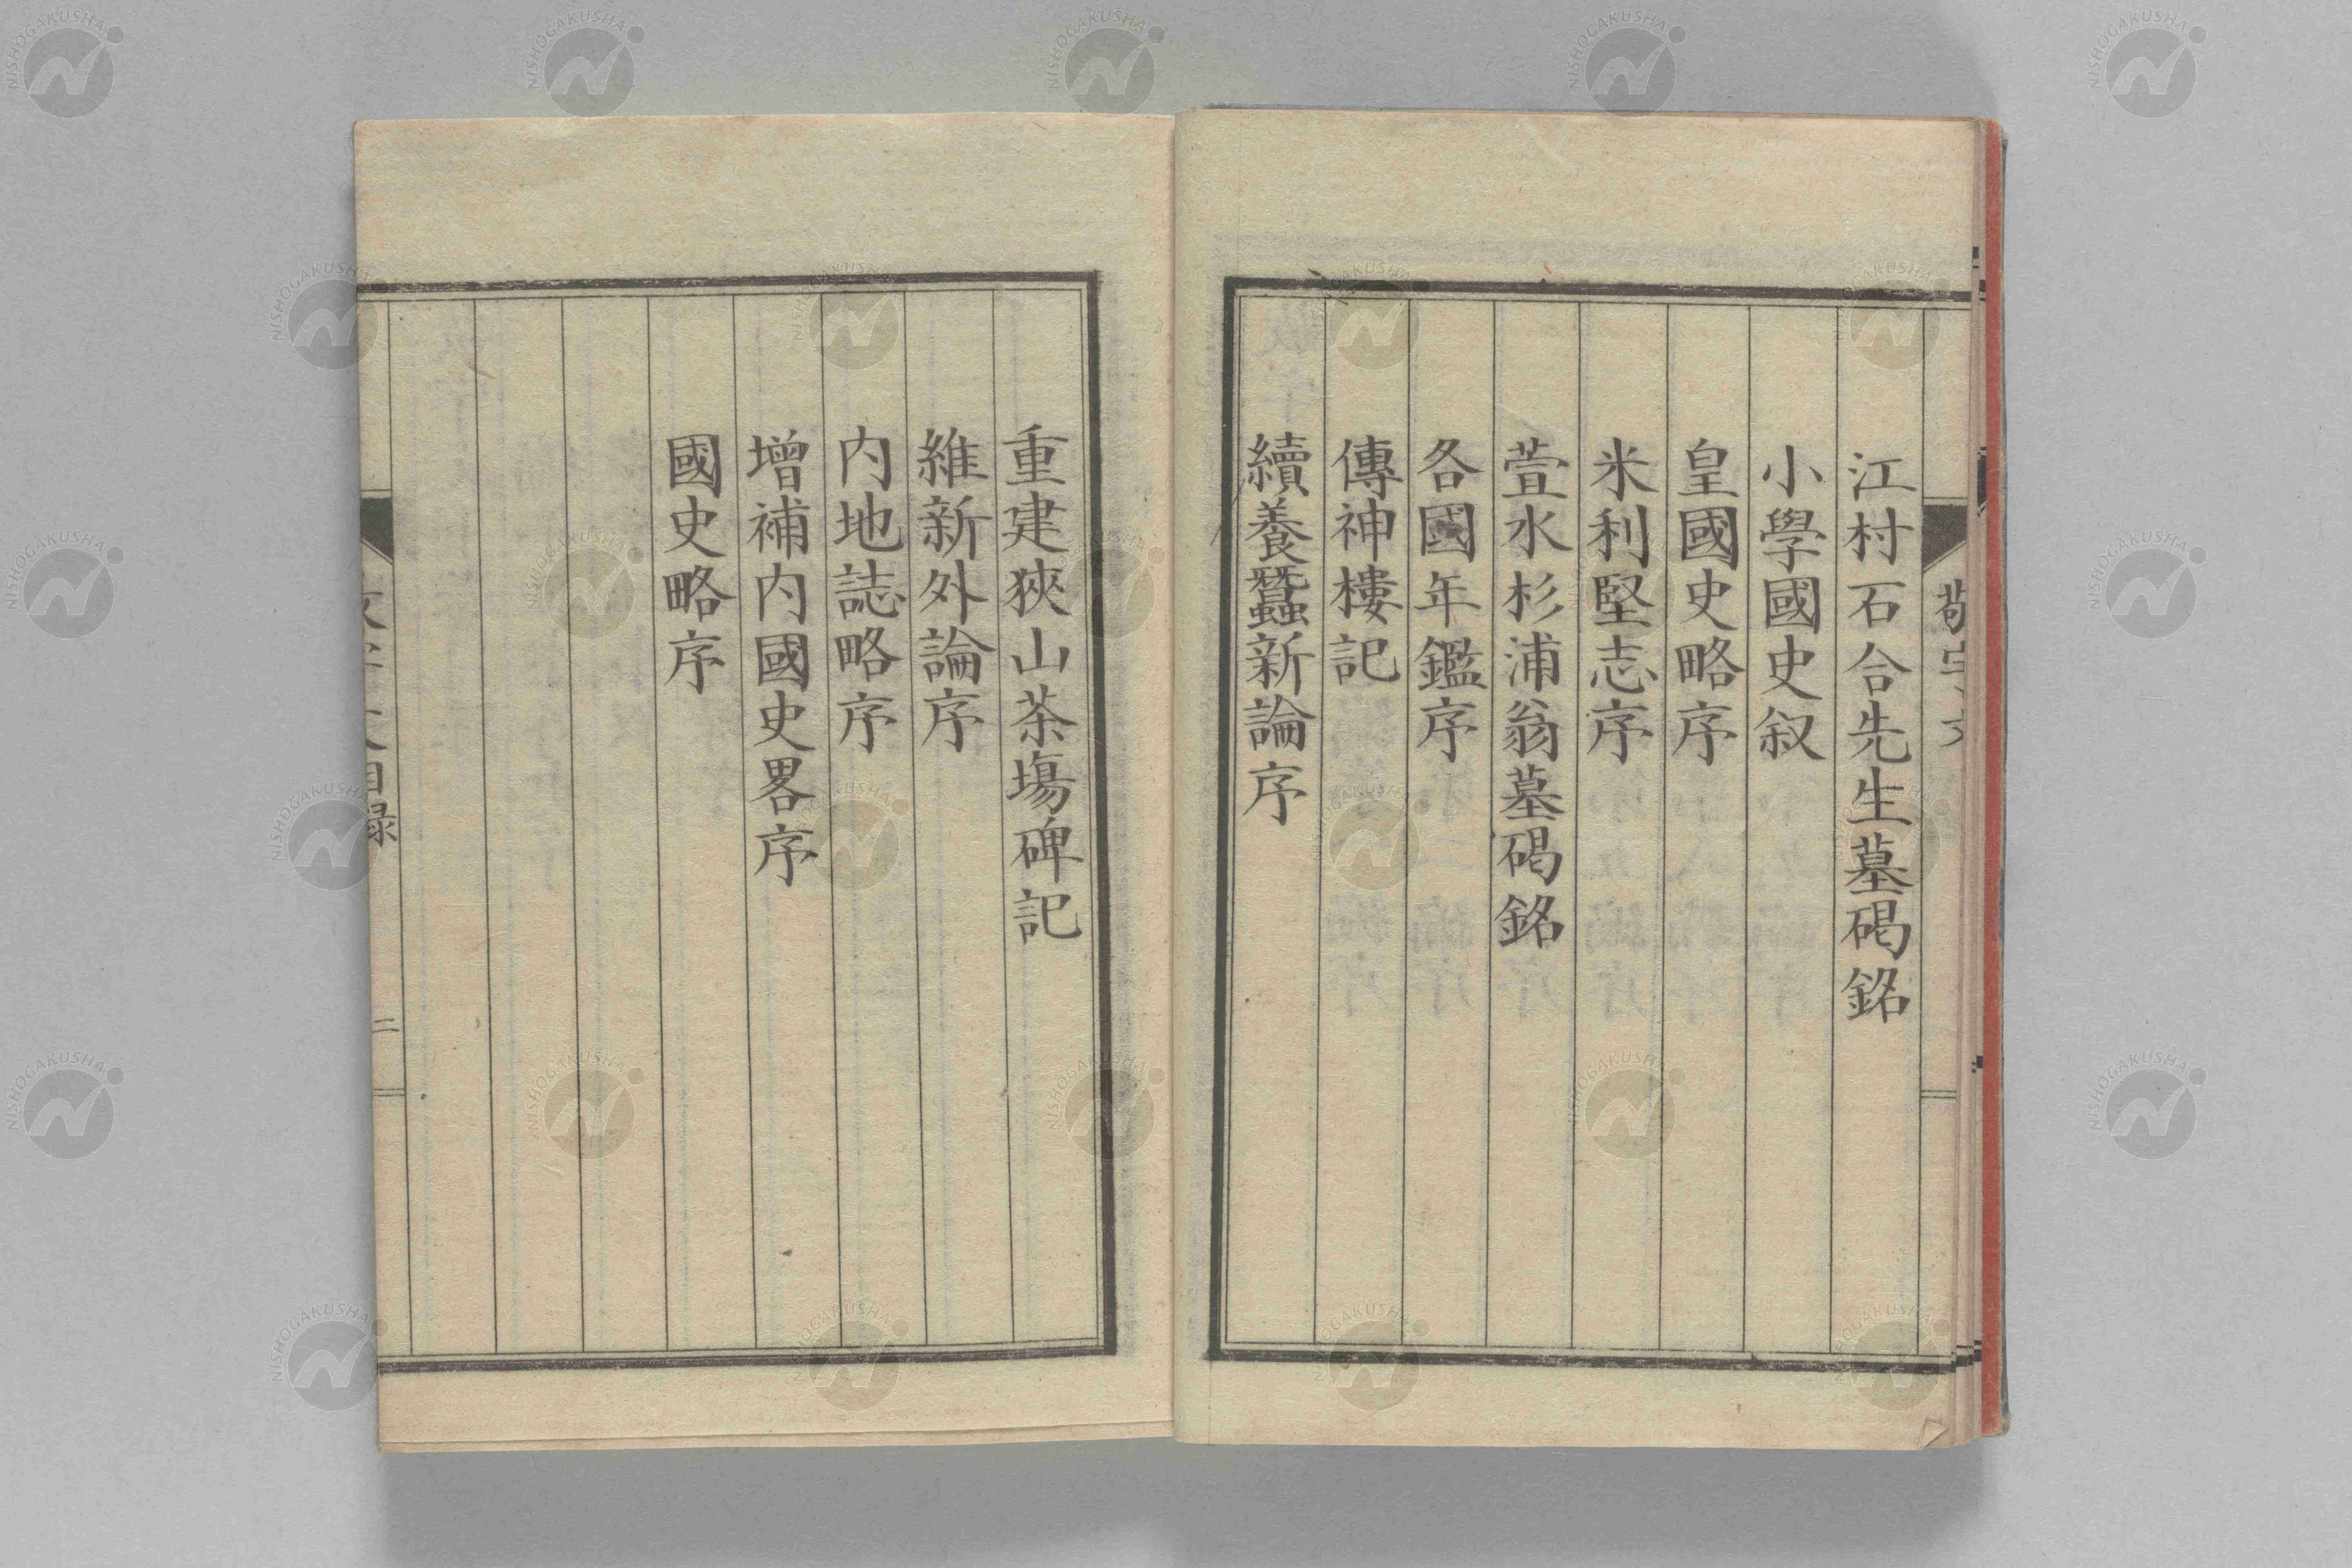 江村石合先生墓碣銘
小學國史叙
皇國史略序
米利堅志序
萱水杉浦翁墓碣銘
各國年鑑序
傳神樓記
續養蠶新論序
重建狹山茶塲碑記
維新外論序
内地誌略序
增補内國史畧序
國史略序
目録
二
NISHOGAKUSHA